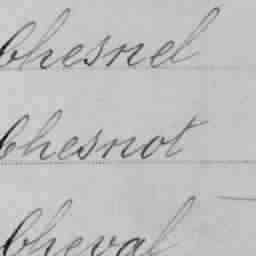 Chesnel
Chesnot
Cheval